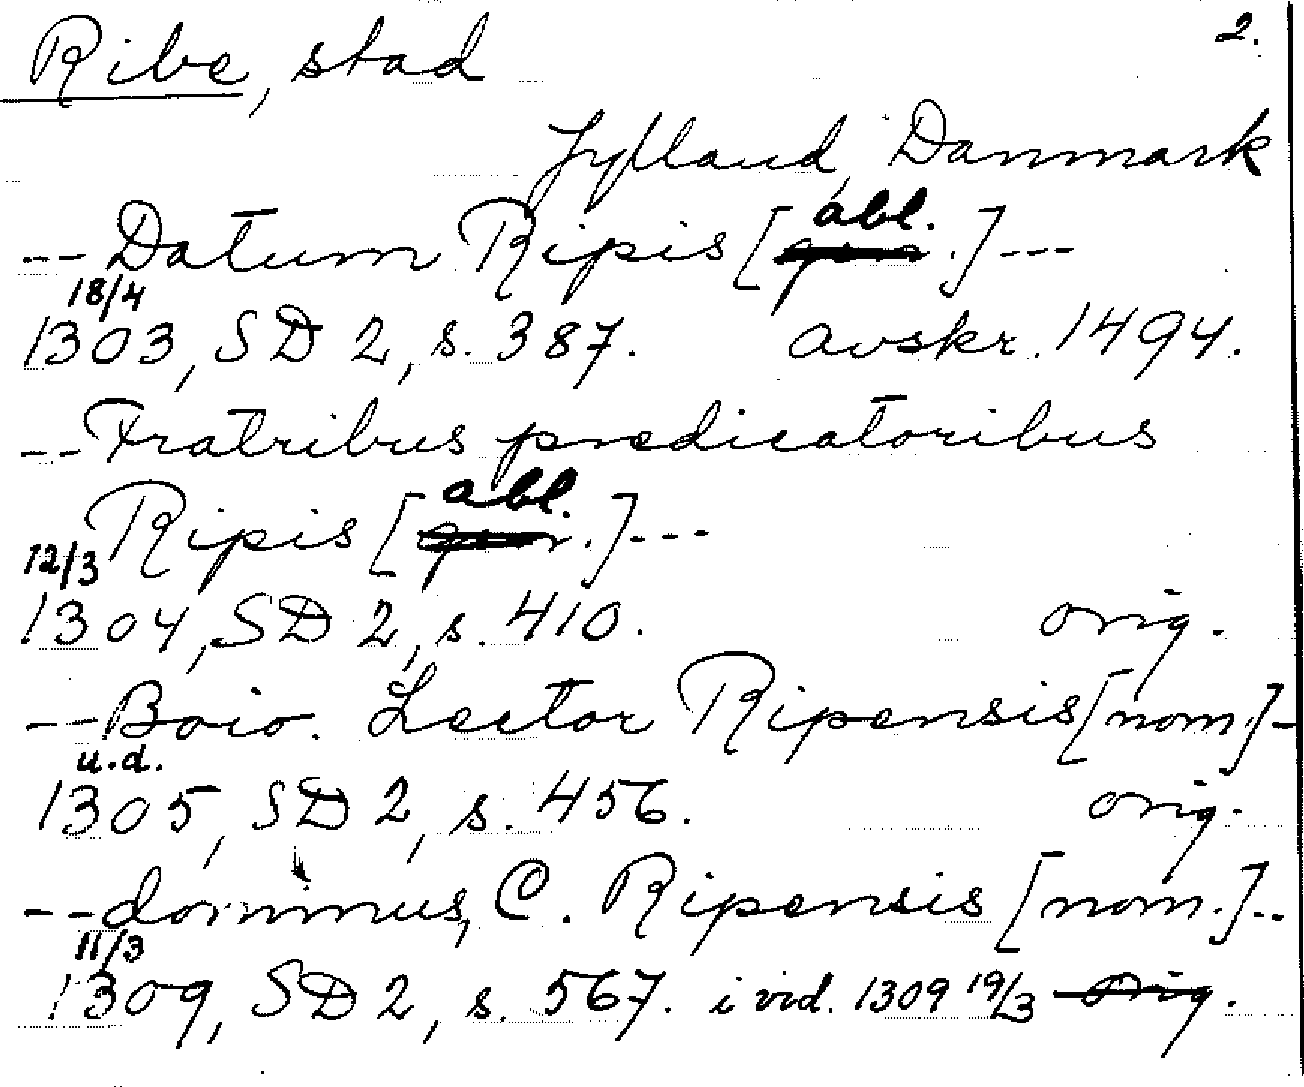 2.
Ribe, stad
Jylland, Danmark
-- Datum Ripis [abl.] ---
18/4
1303, SD 2, s. 387. avskr. 1494.
-- Fratribus predicatoribus
Ripis [abl.] ---
12/3
1304, SD 2, s. 410. orig.
-- Boio. Lector Ripensis [nom.] -
u.d.
1305, SD 2, s. 456. orig.
-- dominus, C. Ripensis [nom.] --
11/3
1309, SD 2, s. 567. i vid. 1309 19/3 orig.